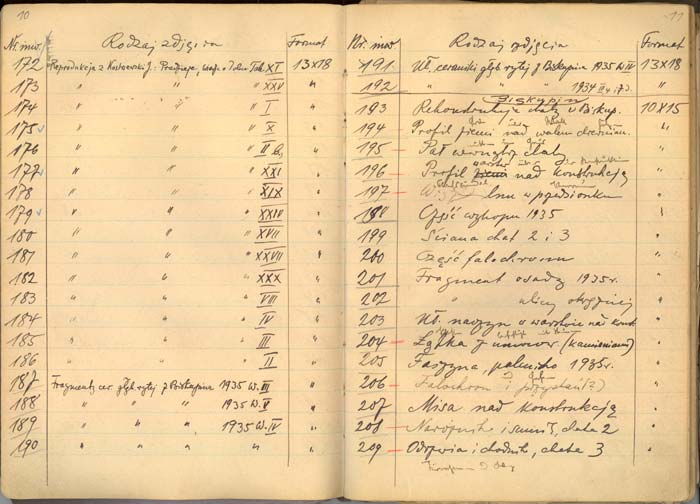 10
Nr. inw. Rodzaj zdjęcia Format
172 Reprodukcja z Kostrzewski J.: Tab. XI 13×18
173 " " " XXV "
174 " " " I "
175 " " " X "
176 " " " II "
177 " " " XXI "
178 " " " XIX "
179 " " " XXIV "
180 " " " XVII "
181 " " " XXVII "
182 " " " XXX "
183 " " " VIII "
184 " " " IV "
185 " " " III "
186 " " " II "
187 Fragmenty cer. głęb. rytej z Biskupina 1935 W. III "
188 " " " 1935 W. V "
189 " " " 1935 W. IV "
190 " " " " "
11
Nr. inw. Rodzaj zdjęcia Format
191 Uł. ceramiki głęb. rytej z Biskupina 1935 W IV 13×18
192 " " 1934 "
Biskupin
193 Rekonstrukcja chaty w Biskup. 10×15
194 Profil ziemi nad wałem drewnian. "
195 wewnątrz chaty "
196 Profil nad konstrukcją "
197 lnu w przedsionku "
198 Część wykopu 1935
199 Ściana chat 2 i 3 "
200 Część falochronu "
201 Fragment osady 1935 r. "
202 " ulicy okrężnej "
203 Uł. naczyń w warstwie nad konst. "
204 (kamieniami) "
205 Faszyna, palenisko 1935 r. "
206 Falochron i przystań (?) "
207 Misa nad konstrukcją "
208 Narożnik chata 2 "
209 Odrzwia i chodnik, chata 3 "